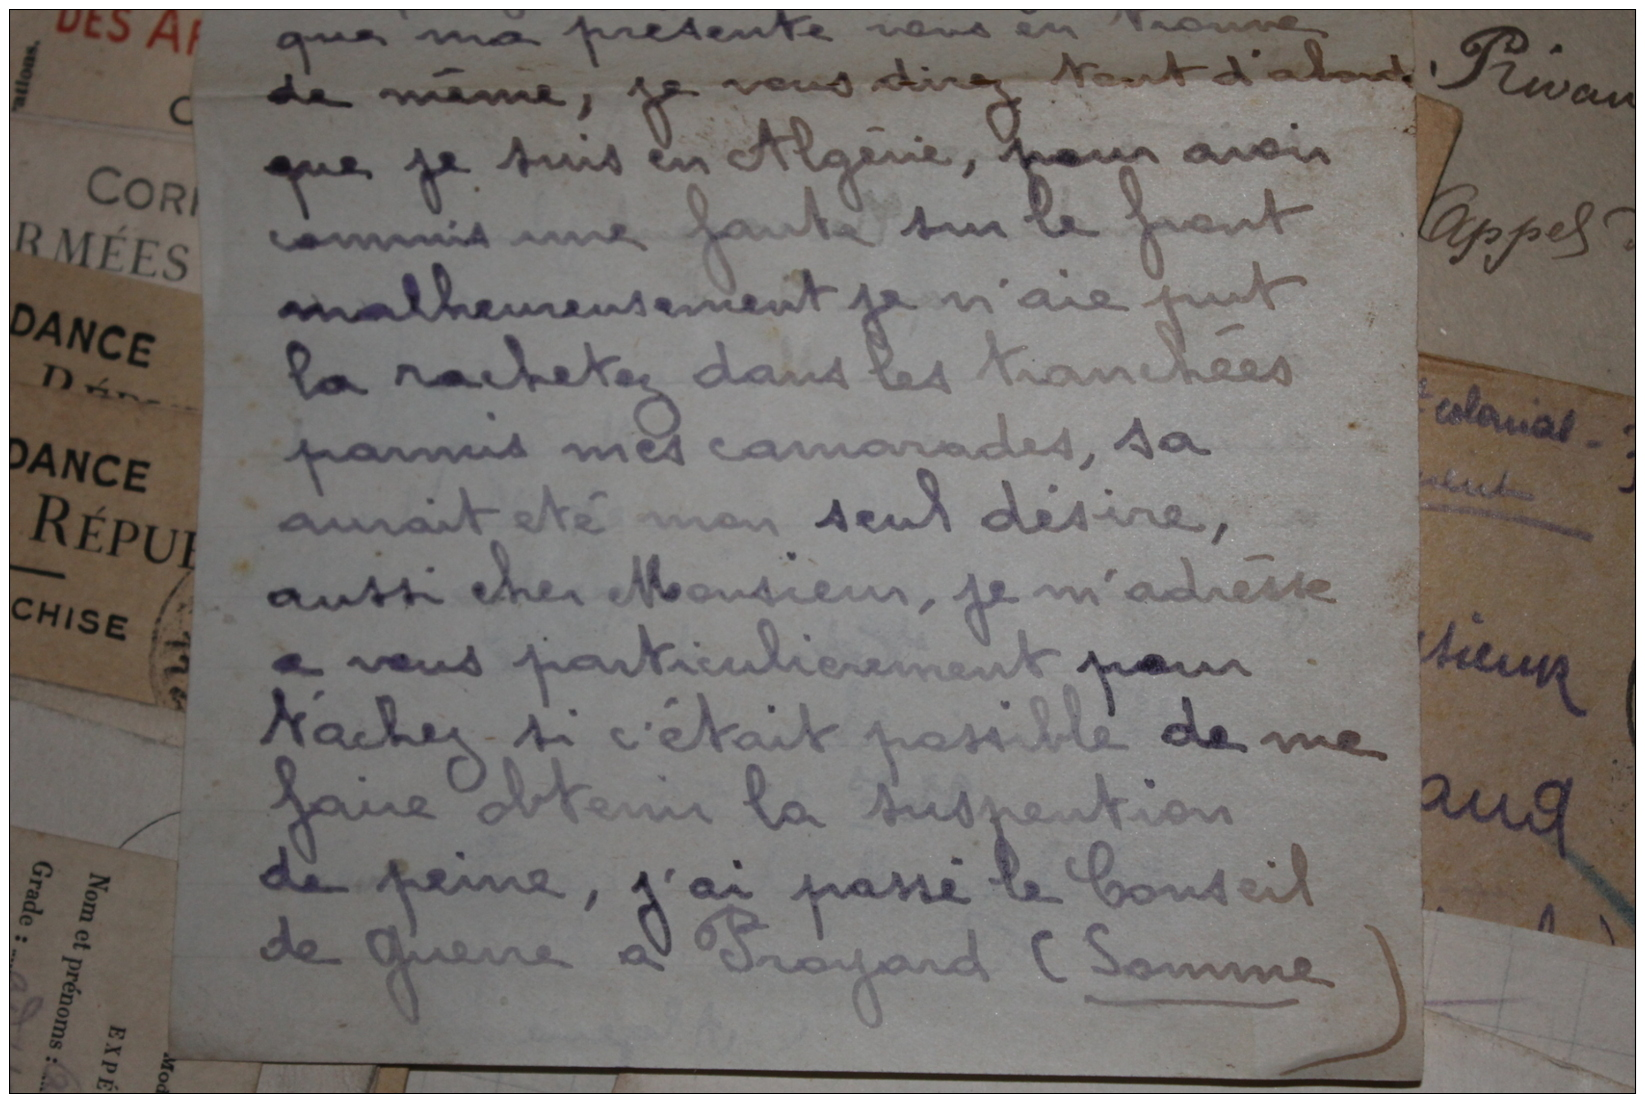 DES AR
ations.
CORR
RMÉES
DANCE
DANCE
RÉPUB
CHISE
Nom et prénoms :
Grade :
EXPÉ
Mod
que ma présente vous en trouve
de même, je vous direz tout d'abord
que je suis en Algérie, pour avoir
commis une faute sur le front
malheureusement je n'aie put
la rachetez dans les tranchées
parmis mes camarades, sa
aurait eté mon seul désire,
aussi cher Monsieur, je m'adrésse
a vous particulierement pour
tâchez si c'était possible de me
faire obtenir la suspention
de peine, j'ai passé le Conseil
de guerre a Proyard (Somme)
Rivau
appel
colonial -
sieur
aud